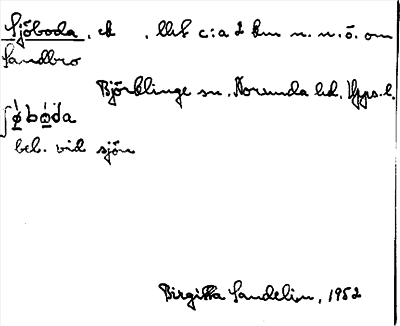 Sjöboda, ek , llek c:a 2 km n. n. ö. om
Sandbro
Björklinge sn, Norunda hd, Upps. l.
bel. vid sjön
Birgitta Sandelin, 1952